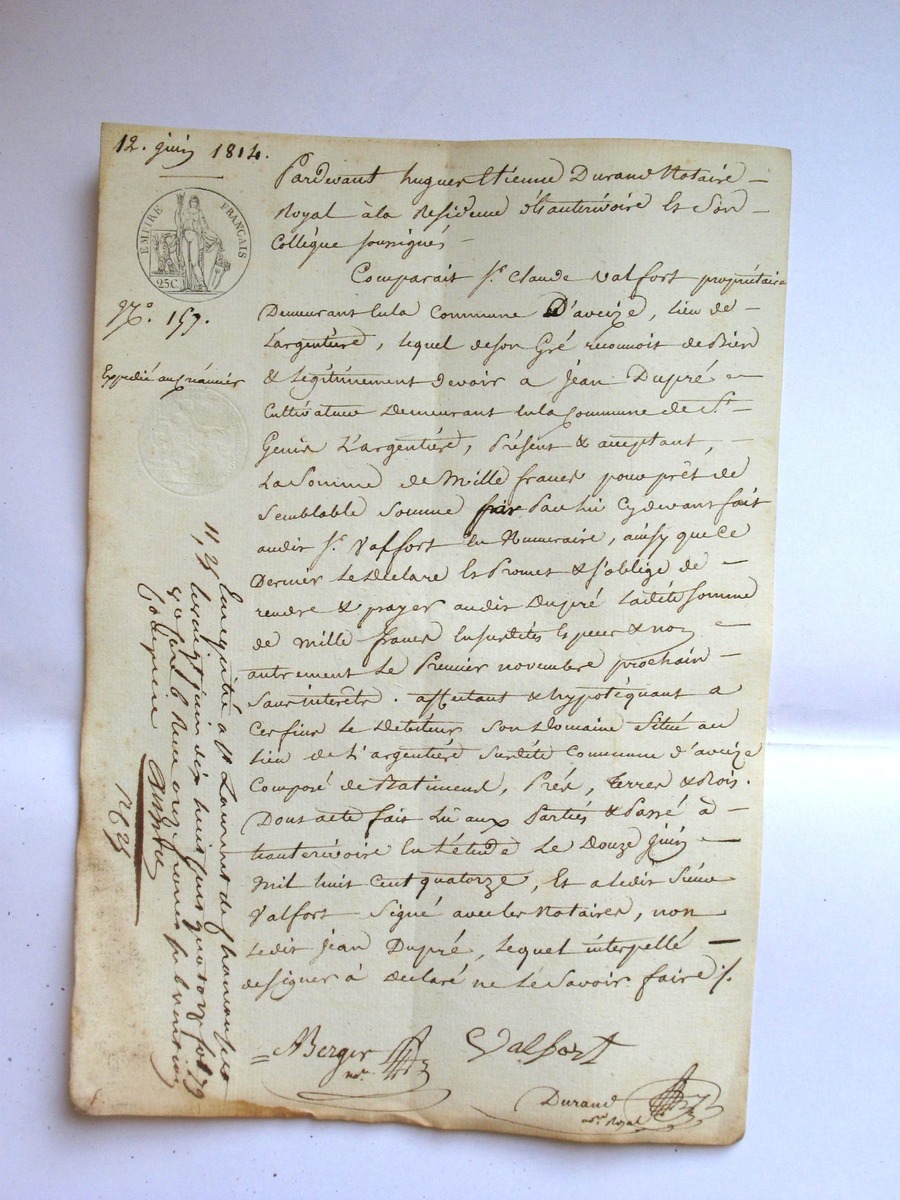 12. juin 1814.
EMPIRE FRANÇAIS
25C.
N.° 157.
Expédié au créancier
Pardevant hugues Etienne Durand Notaire
Royal à la Residence d'hauterivoire Et Son
Collègue soussignés
Comparait Sr. Claude Valfort propriétaire
Demeurant En la Commune D'aveize, Lieu de
Largentière, Lequel de son Gré reconnoit de Bien
& Légitimement devoir a Jean Dupré
Cultivateur Demeurant En la Commune de St
Genis L'argentière, Présent & acceptant,
La Somme de Mille francs pour prêt de
Semblable Somme Par Lui Cy devant fait
audit Sr. Valfort En Numeraire, ainsy que Ce
Dernier Le Déclare Et Promet & s'oblige de
rendre & payer audit Dupré Ladite Somme
de Mille francs En susdites Espèces & non
autrement Le Premier novembre prochain
Sans interêts. affectant & hypotéquant a
Cet fins Le Debiteur Son Domaine Situé au
Lieu de L'argentière Surdite Commune d'aveize
Composé de Batiments, Prés, terres & Bois.
Dont acte fait Lû aux Parties & Passé à
hauterivoire En L'étude Le Douze Juin
Mil huit Cent quatorze, Et a Ledit Sieur
Valfort Signé avec Les Notaires, non
Ledit Jean Dupré, Lequel interpellé
de signer à Déclaré ne Le Savoir faire /.
ABerger
not.re
Valfort
Durand
not.re Royal
Enregistré à St Laurent de Chamousset
Le vingt juin dix huit cent quatorze fol. 79
Reçu onze francs subvention
11, 25
1625